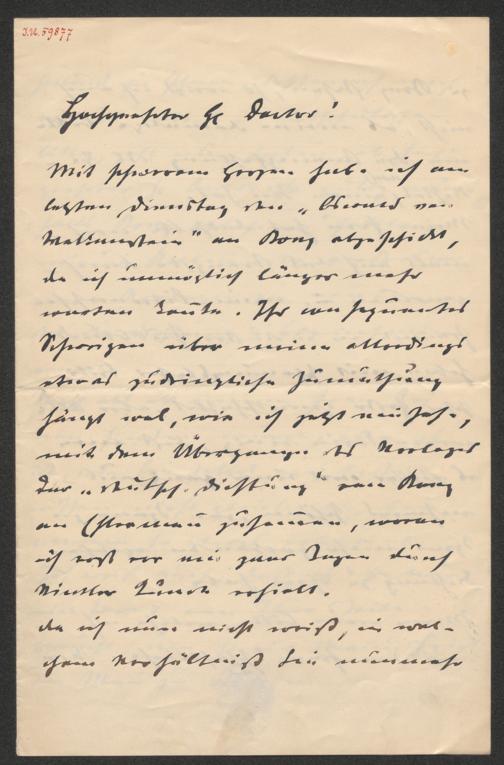 I.N. 59877
Hochgeehrter H. Doctor!
Mit schwerem Herzen habe ich am
letzten Dienstag den „Oswald von
Wolkenstein" an Bonz abgeschickt,
da ich unmöglich länger mehr
warten konnte. Ihr consequentes
Schweigen über meine allerdings
etwas zudringliche Zumuthung
hängt wol, wie ich jetzt einsehe,
mit dem Übergange des Verlages
der „deutsch. Dichtung" von Bonz
an Ehlermann zusammen, wovon
ich erst vor ein paar Tagen durch
Kunde erhielt.
Da ich nun nicht weiß, in wel-
chem Verhältniß Sie nunmehr